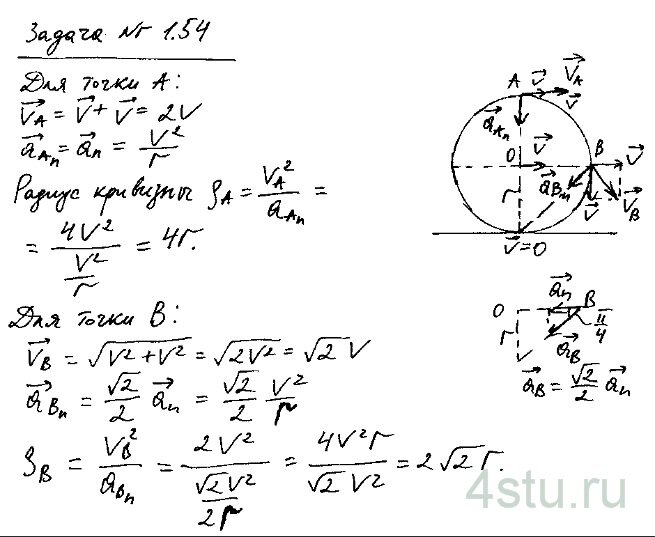 Задача № 1.54
Для точки А:
V⃗_A = V⃗ + V⃗ = 2V
a⃗_{A_n} = a⃗_n = V²/r
Радиус кривизны ρ_A = V_A²/a_{A_n} =
= 4V²/(V²/r) = 4r.
Для точки В:
V⃗_B = √(V²+V²) = √(2V²) = √2 V
a⃗_{B_n} = √2/2 a⃗_n = √2/2 V²/r
ρ_B = V_B²/a_{B_n} = 2V²/(√2V²/2r) = 4V²r/(√2 V²) = 2√2 r.
A V⃗ V⃗_A
V⃗
a⃗_{A_n}
O V⃗ B V⃗
a⃗_{B_n}
r V⃗ V⃗_B
V⃗=0
a⃗_n
O B
r π/4
a⃗_B
a⃗_B = √2/2 a⃗_n
4stu.ru